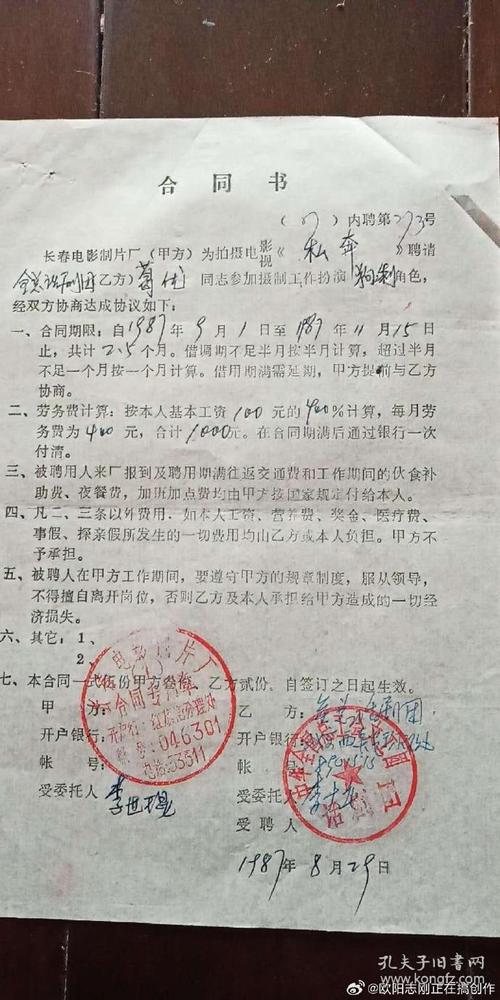 合同书
(87)内聘第273号
长春电影制片厂(甲方)为拍摄电影视《私奔》聘请
全总话剧团(乙方)葛优同志参加摄制工作扮演狗剩角色,
经双方协商达成协议如下:
一、合同期限:自1987年9月1日至1987年11月15日
止,共计2.5个月。借调期不足半月按半月计算,超过半月
不足一个月按一个月计算。借用期满需延期,甲方提前与乙方
协商。
二、劳务费计算:按本人基本工资100元的400%计算,每月劳
务费为400元,合计1000元。在合同期满后通过银行一次
付清。
三、被聘用人来厂报到及聘用期满往返交通费和工作期间的伙食补
助费、夜餐费,加班加点费均由甲方按国家规定付给本人。
四、凡二、三条以外费用,如本人工资、营养费、奖金、医疗费、
事假、探亲假所发生的一切费用均由乙方或本人负担。甲方不
予承担。
五、被聘人在甲方工作期间,要遵守甲方的规章制度,服从领导,
不得擅自离开岗位,否则乙方及本人承担给甲方造成的一切经
济损失。
六、其它:1、
2、
七、本合同一式伍份甲方叁份,乙方贰份,自签订之日起生效。
甲方: 乙方:
开户银行: 开户银行:
帐号: 帐号:
受委托人 李世 受委托人 李
受聘人
1987年8月29日
电影制片厂
合同专用章
046301
电话:53311
孔夫子旧书网
@欧阳志刚正在搞创作